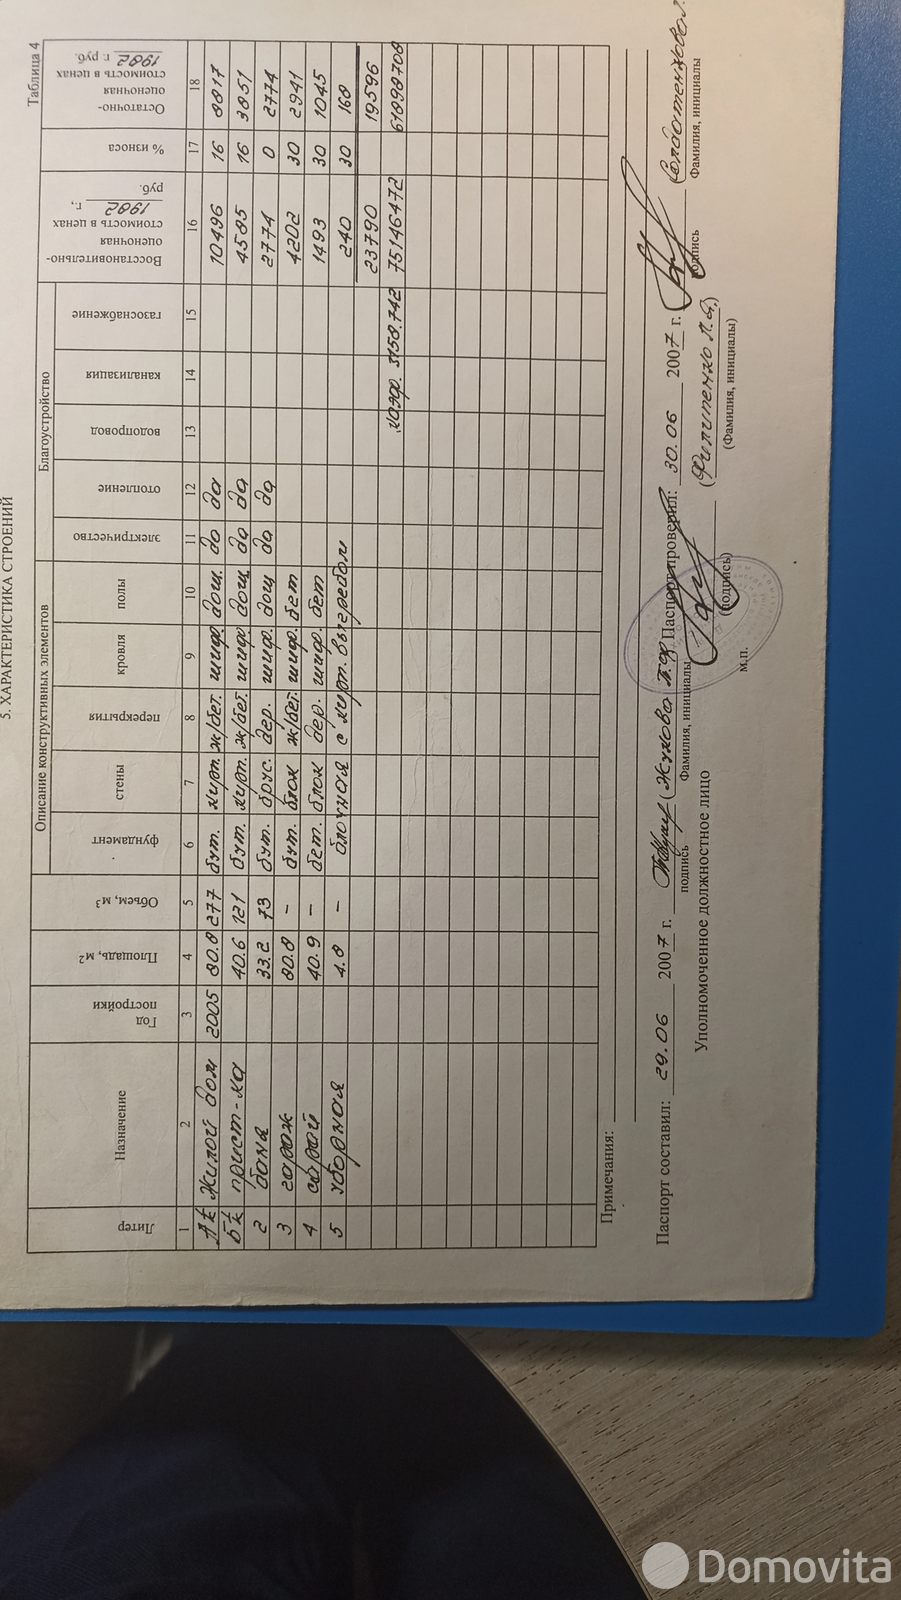 5. ХАРАКТЕРИСТИКА СТРОЕНИЙ
Таблица 4
Литер
Назначение
Год постройки
Площадь, м²
Объем, м³
Описание конструктивных элементов
фундамент
стены
перекрытия
кровля
полы
Благоустройство
электричество
отопление
водопровод
канализация
газоснабжение
Восстановительно-оценочная стоимость в ценах 1982 г., руб.
% износа
Остаточно-оценочная стоимость в ценах 1982 г. руб.
1 2 3 4 5 6 7 8 9 10 11 12 13 14 15 16 17 18
Жилой дом 2005 80.8 277 бут. кирп. ж/бет. шиф. дощ. да да 10496 16 8817
прист-ка 40.6 121 бут. кирп. ж/бет. шиф. дощ. да да 4585 16 3851
2 баня 33.2 73 бут. брус. дер. шиф. дощ да да 2774 0 2774
3 гараж 80.8 – бут. блок ж/бет. шиф. бет 4202 30 2941
4 сарай 40.9 – бет. блок дер. шиф. бет 1493 30 1045
5 уборная 4.8 – блочная с кирп. выгребом 240 30 168
23790 19596
коэф. 3158.742 75146472 61898708
Примечания:
Паспорт составил: 29.06 2007 г. (Жукова Паспорт проверил: 30.06 2007 г.
подпись Фамилия, инициалы подпись Фамилия, инициалы
Уполномоченное должностное лицо (Филипенко Л.Я.)
(подпись) (Фамилия, инициалы)
(Фамилия, инициалы)
м.п.
Domovita